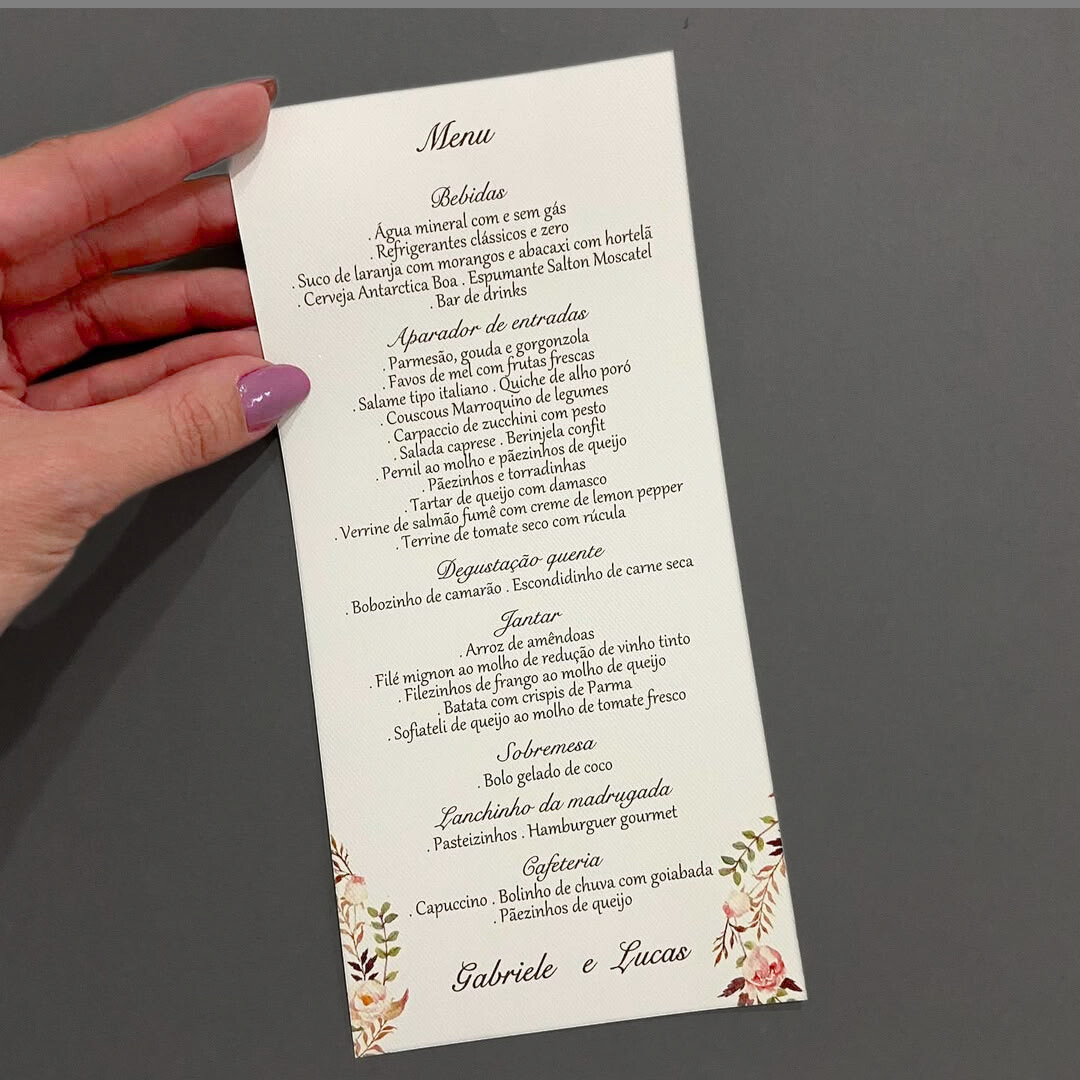 Menu
Bebidas
. Água mineral com e sem gás
. Refrigerantes clássicos e zero
. Suco de laranja com morangos e abacaxi com hortelã
. Cerveja Antarctica Boa . Espumante Salton Moscatel
. Bar de drinks
Aparador de entradas
. Parmesão, gouda e gorgonzola
. Favos de mel com frutas frescas
. Salame tipo italiano . Quiche de alho poró
. Couscous Marroquino de legumes
. Carpaccio de zucchini com pesto
. Salada caprese . Berinjela confit
. Pernil ao molho e pãezinhos de queijo
. Pãezinhos e torradinhas
. Tartar de queijo com damasco
. Verrine de salmão fumê com creme de lemon pepper
. Terrine de tomate seco com rúcula
Degustação quente
. Bobozinho de camarão . Escondidinho de carne seca
Jantar
. Arroz de amêndoas
. Filé mignon ao molho de redução de vinho tinto
. Filezinhos de frango ao molho de queijo
. Batata com crispis de Parma
. Sofiateli de queijo ao molho de tomate fresco
Sobremesa
. Bolo gelado de coco
Lanchinho da madrugada
. Pasteizinhos . Hamburguer gourmet
Cafeteria
. Capuccino . Bolinho de chuva com goiabada
. Pãezinhos de queijo
Gabriele e Lucas